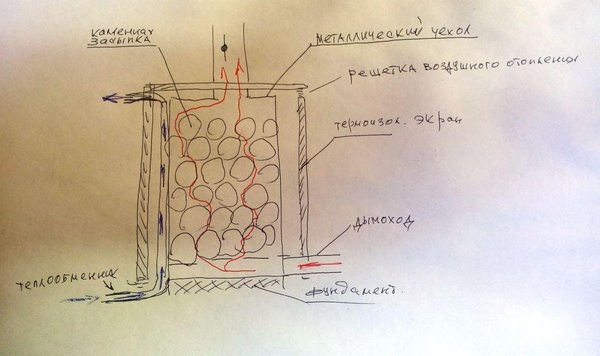 каменная
засыпка
металлический чехол
решетка воздушного отопления
термоизол. экран
дымоход
теплообменник
фундамент.